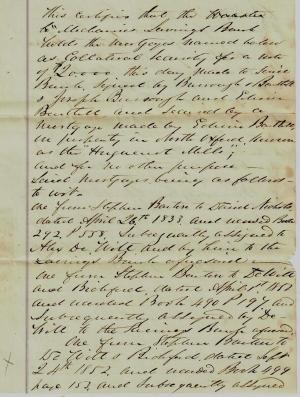 This certifies that the Worcester
Mechanics Savings Bank
holds the Mortgages named below
as Collateral Security for a note
of $20000. this day made to said
Bank, signed by Burroughs &
& Joseph Burrough and Edwin
Bartlett and Secured by a
Mortgage made by Edwin Bartlett
on property in North Oxford, known
as the "Huguenot Mills"
and for no other purpose
Said Mortgages being as follows
to wit
one from Stephen Barton to David
dated April 26th 1838, and recorded Book
292 P 558. Subsequently assigned to
De Witt and by him to the
Savings Bank aforesaid
one from Stephen Barton to De Witt
and Bickford, dated April 1st 1852
and recorded Book 490 P 197 and
Subsequently assigned by De
Witt to the Savings Bank aforesaid
One from Stephen Barton to
De Witt & Bickford, dated Sept
24th 1852, and recorded Book 499
page 152, and Subsequently assigned